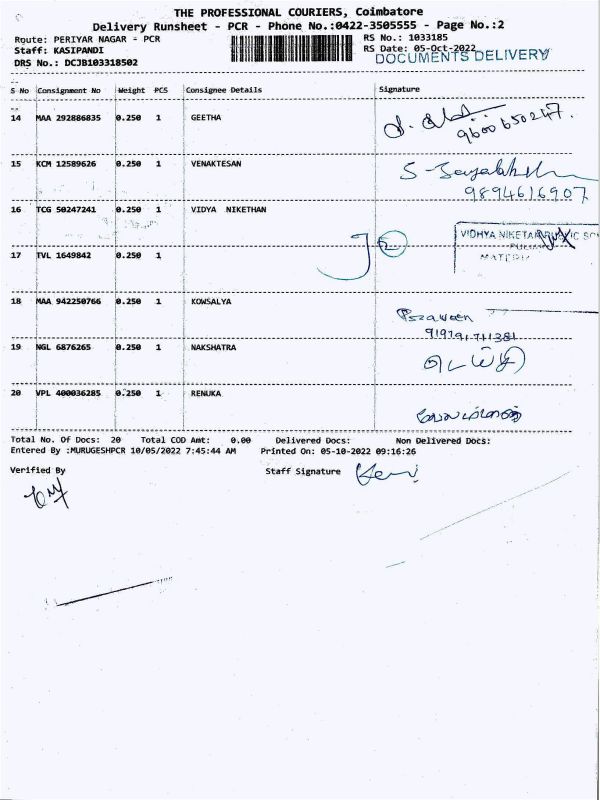 THE PROFESSIONAL COURIERS, Coimbatore
Delivery Runsheet - PCR - Phone No.:0422-3505555 - Page No.:2
Route: PERIYAR NAGAR - PCR
Staff: KASIPANDI
DRS No.: DCJB103318502
RS No.: 1033185
RS Date: 05-Oct-2022
DOCUMENTS DELIVERY
S No Consignment No Weight PCS Consignee Details Signature
14 MAA 292886835 0.250 1 GEETHA
9600650247.
15 KCM 12589626 0.250 1 VENAKTESAN
9894616907
16 TCG 50247241 0.250 1 VIDYA NIKETHAN
VIDHYA NIKETAN
17 TVL 1649842 0.250 1
18 MAA 942250766 0.250 1 KOWSALYA
919791711381
19 NGL 6876265 0.250 1 NAKSHATRA
20 VPL 400036285 0.250 1 RENUKA
Total No. Of Docs: 20 Total COD Amt: 0.00 Delivered Docs: Non Delivered Docs:
Entered By :MURUGESHPCR 10/05/2022 7:45:44 AM Printed On: 05-10-2022 09:16:26
Verified By Staff Signature